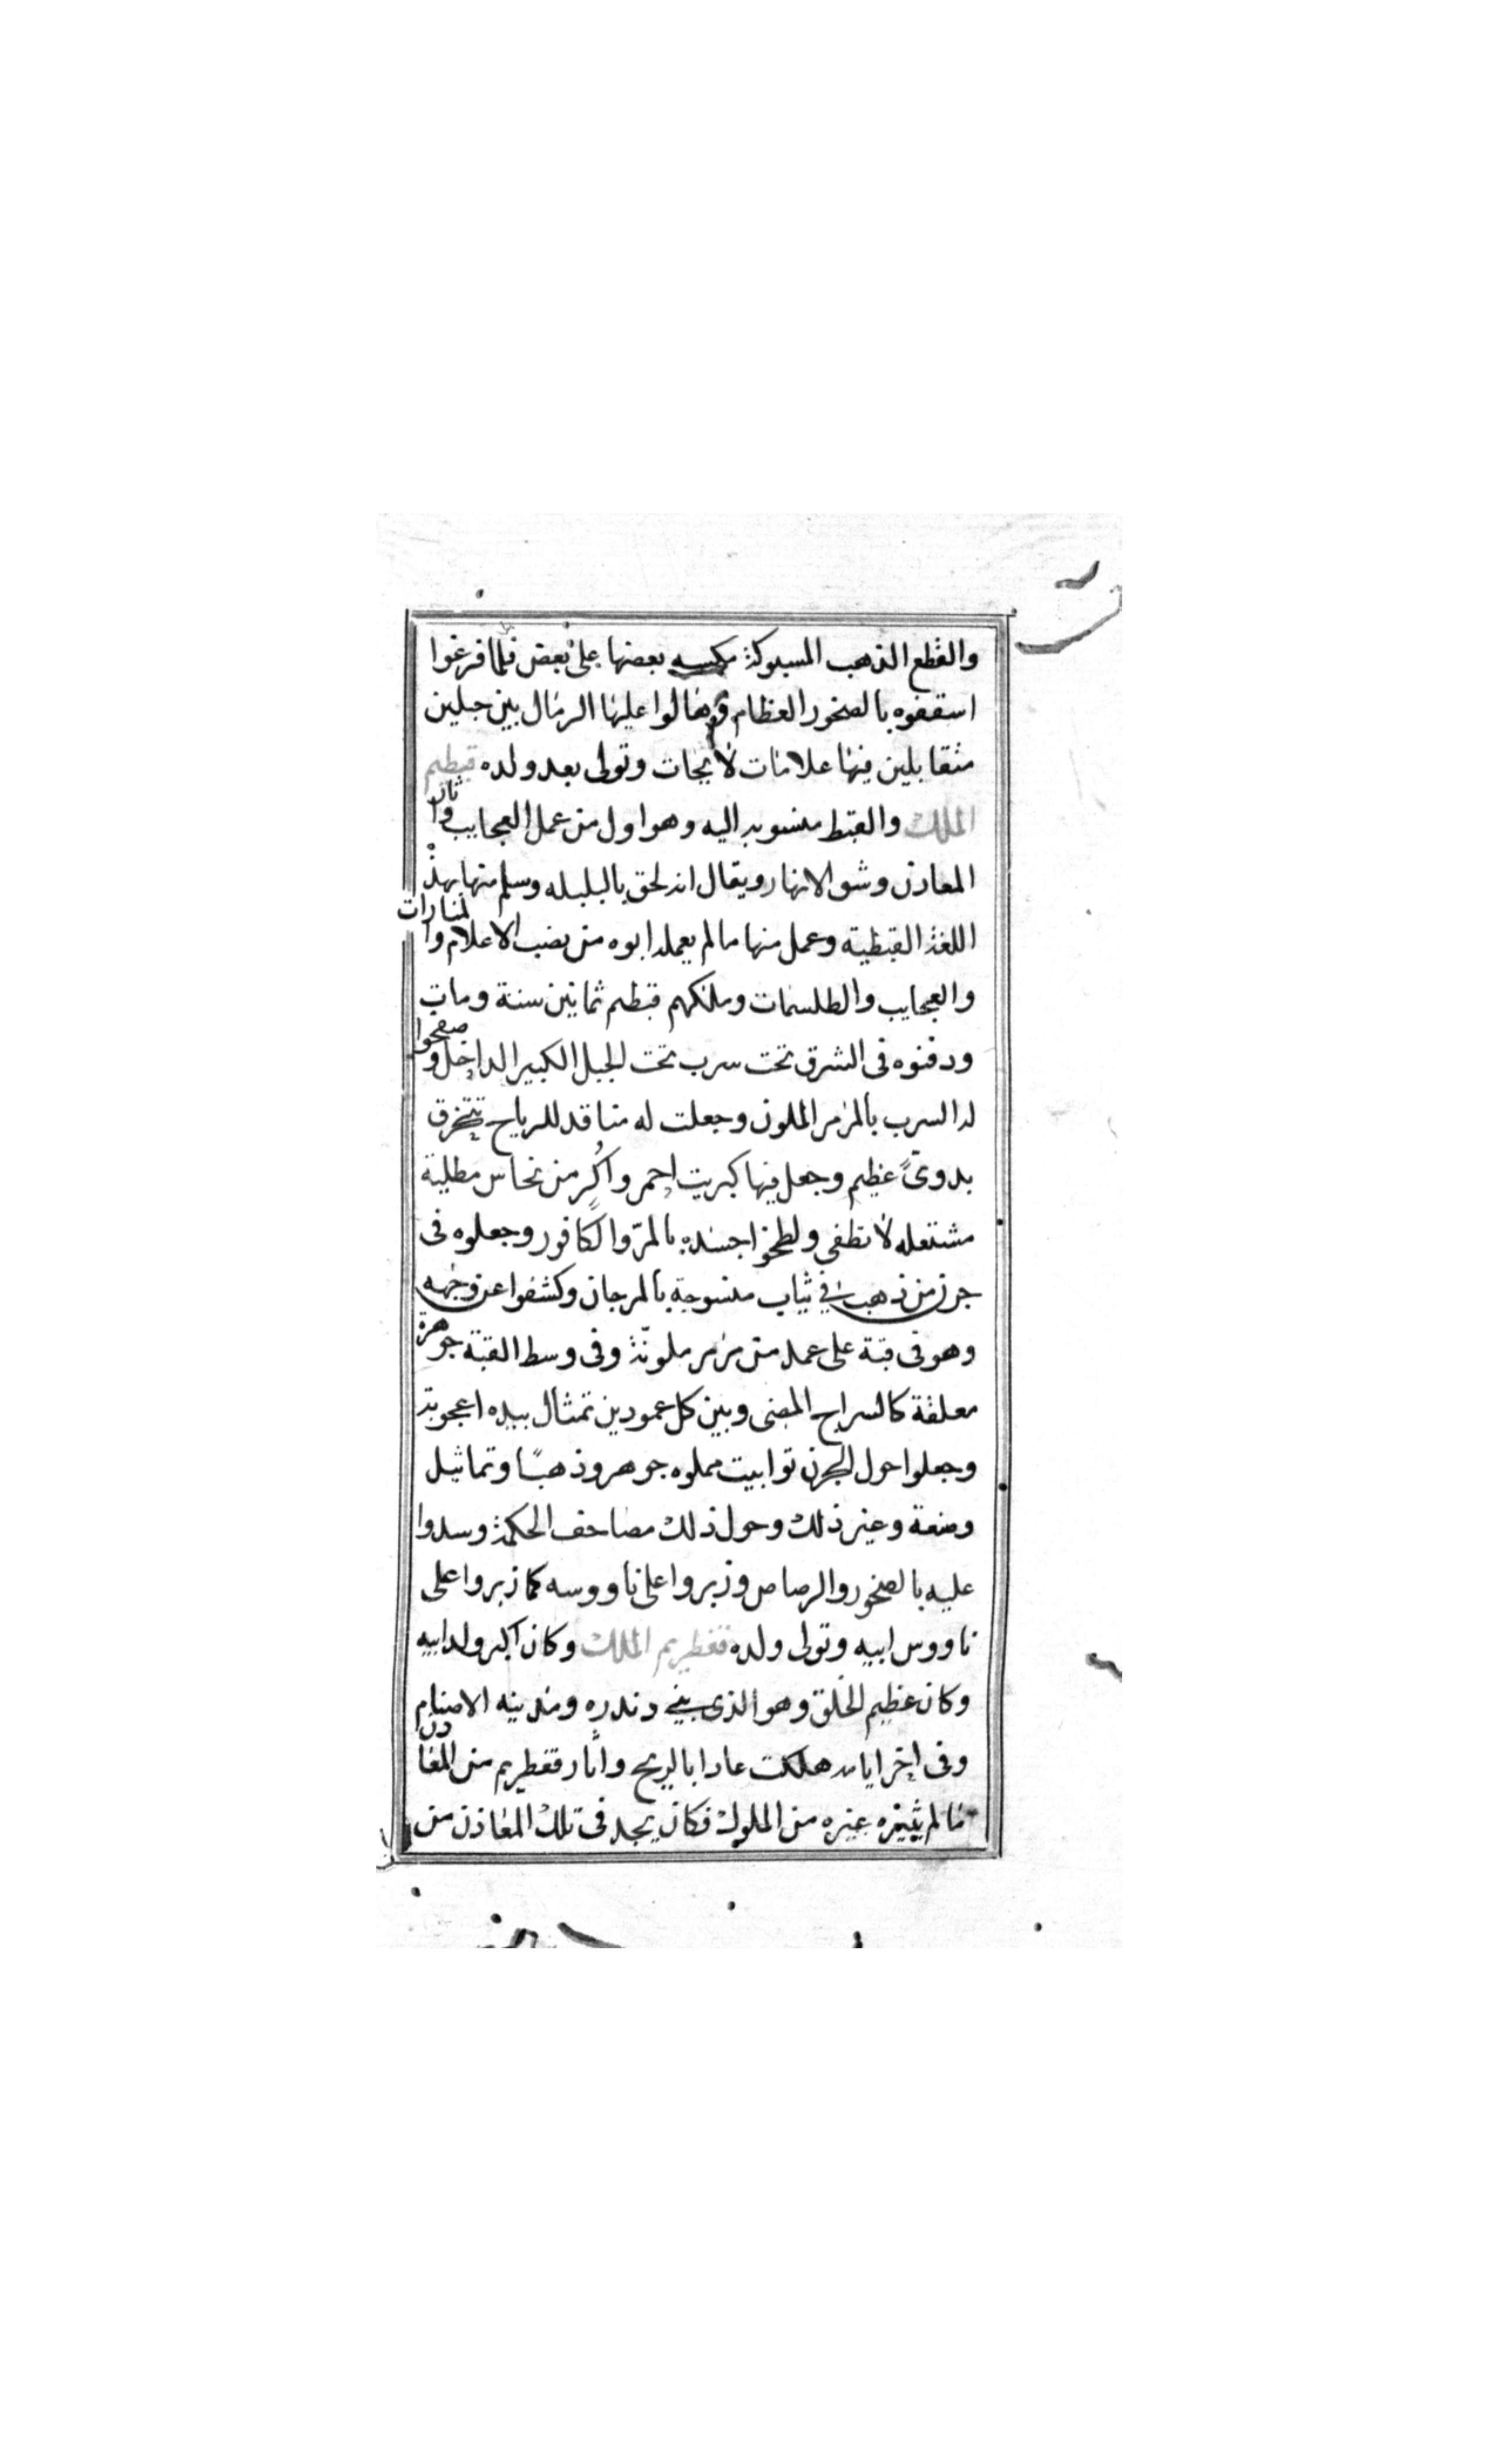 والقطع الذهب المسبوكة مكبسه بعضها على بعض فلما فرغوا
اسقفوه بالصخور العظام وهالوا عليها الرمال بين جبلين
متقابلين فيها علامات لا تجات وتولى بعد ولده قبطيم
الملك والقبط منسوبه اليه وهو اول من عمل العجايب واثار
المعادن وشق الانهار ويقال انه لحق بالبلبله وسلم منها بهذه
اللغة القبطية وعمل منها ما لم يعمله ابوه من نصب الاعلام والمنارات
والعجايب والطلسمات وملكهم قبطيم ثمانين سنة ومات
ودفنوه فى الشرق تحت سرب تحت الجبل الكبير الداخل وصفحوا
له السرب بالمرمر الملون وجعلت له منافد للرياح تتخرق
بدوىً عظيم وجعل فيها كبريت احمر واُكر من نحاس مطلية
مشتعله لا تطفى ولطخوا جسده بالمرّ والكافور وجعلوه فى
جرن من ذهب في ثياب منسوجة بالمرجان وكشفوا عن وجهه
وهو فى قبة على عمد من مرمر ملونّة وفى وسط القبة جوهرة
معلقة كالسراج المضى وبين كل عمودين تمثال بيده اعجوبة
وجعلوا حول الجرن توابيت مملوه جوهر وذهبًا وتماثيل
وصنعة وغير ذلك وحول ذلك مصاحف الحكمة وسدوا
عليه بالصخور والرصاص وزبروا على ناووسه كما زبروا على
ناووس ابيه وتولى ولده قفطريم الملك وكان اكبر ولد ابيه
وكان عظيم الخلق وهو الذى بني دندره ومدينه الاصنام
وفى اخر ايامه هلكت عاد ابالريح واثار قفطريم من المعادن
ما لم يثيره غيره من الملوك فكان يجد فى تلك المعادن من